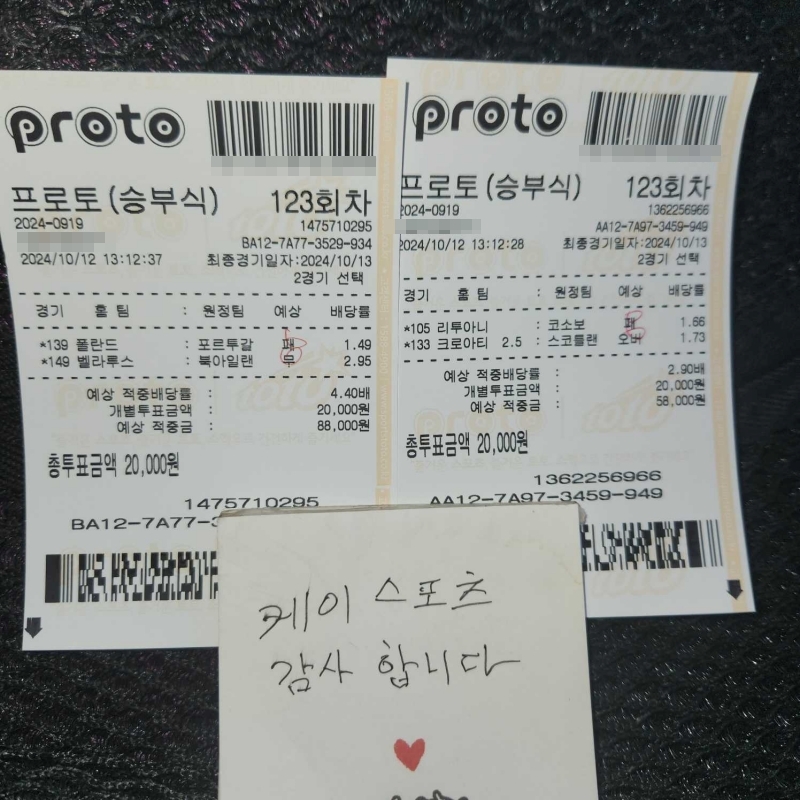 proto
프로토(승부식) 123회차
2024-0919 1475710295
BA12-7A77-3529-934
2024/10/12 13:12:37 최종경기일자:2024/10/13
2경기 선택
경기 홈 팀 : 원정팀 예상 배당률
*139 폴란드 : 포르투갈 패 1.49
*149 벨라루스 : 북아일랜 무 2.95
예상 적중배당률 : 4.40배
개별투표금액 : 20,000원
예상 적중금 : 88,000원
총투표금액 20,000원
1475710295
BA12-7A77-3
proto
프로토(승부식) 123회차
2024-0919 1362256966
AA12-7A97-3459-949
2024/10/12 13:12:28 최종경기일자:2024/10/13
2경기 선택
경기 홈 팀 : 원정팀 예상 배당률
*105 리투아니 : 코소보 패 1.66
*133 크로아티 2.5 : 스코틀랜 오버 1.73
예상 적중배당률 : 2.90배
개별투표금액 : 20,000원
예상 적중금 : 58,000원
총투표금액 20,000원
1362256966
AA12-7A97-3459-949
케이 스포츠
감사 합니다